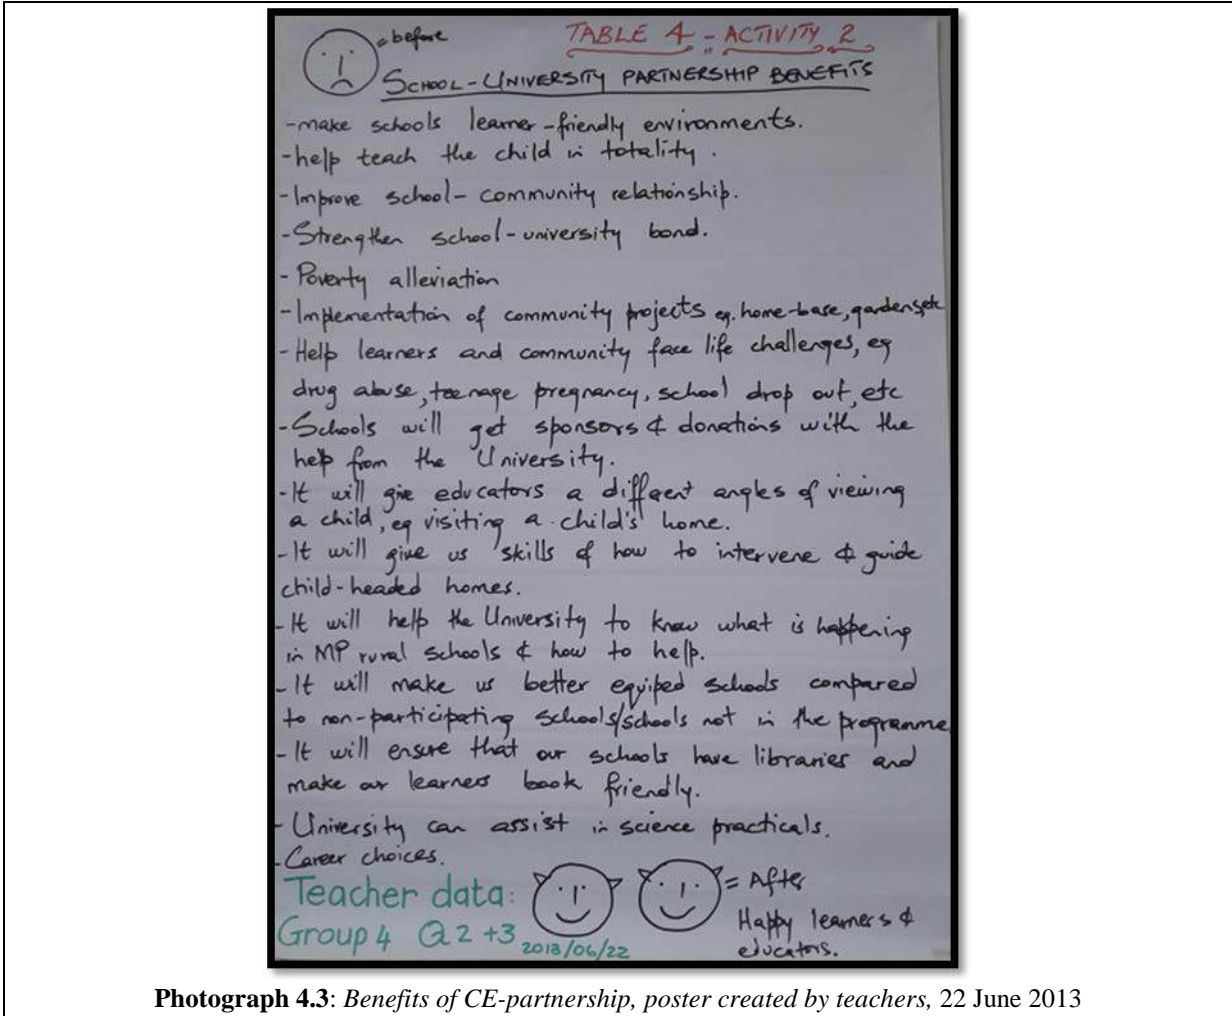 = before
TABLE 4 - ACTIVITY 2
SCHOOL - UNIVERSITY PARTNERSHIP BENEFITS
- make schools learner - friendly environments.
- help teach the child in totality.
- Improve school - community relationship.
- Strengthen school - university bond.
- Poverty alleviation
- Implementation of community projects eg. home-base, gardens, etc
- Help learners and community face life challenges, eg
drug abuse, teenage pregnancy, school drop out, etc
- Schools will get sponsors & donations with the
help from the University.
- It will give educators a different angles of viewing
a child, eg visiting a child's home.
- It will give us skills of how to intervene & guide
child-headed homes.
- It will help the University to know what is happening
in MP rural schools & how to help.
- It will make us better equiped schools compared
to non-participating schools/schools not in the programme
- It will ensure that our schools have libraries and
make our learners book friendly.
- University can assist in science practicals.
- Career choices.
= After
Happy learners &
educators.
Teacher data:
Group 4 Q 2 + 3
2013/06/22
Photograph 4.3: Benefits of CE-partnership, poster created by teachers, 22 June 2013